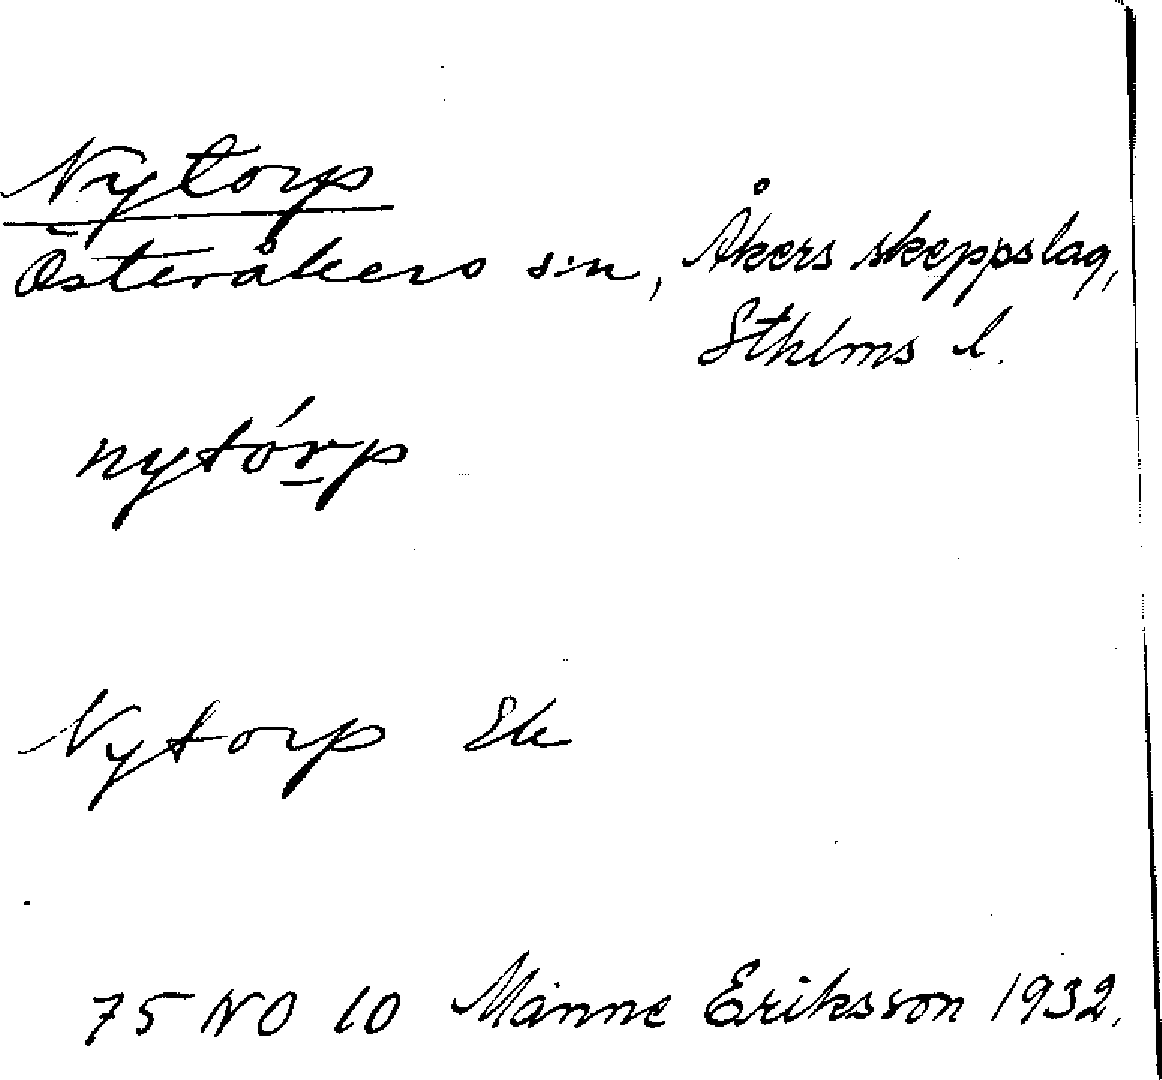 Nytorp
Österåkers sn, Åkers skeppslag,
Sthlms l.
nytórp
Nytorp Ek
75 NO 10 Manne Eriksson 1932.